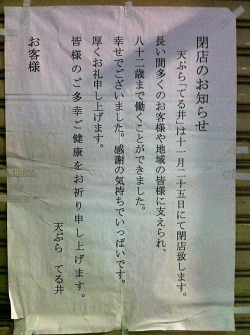 閉店のお知らせ
天ぷら「てる井」は十一月二十五日にて閉店致します。
長い間多くのお客様や地域の皆様に支えられ、
八十二歳まで働くことができました。
幸せでございました。感謝の気持ちでいっぱいです。
厚くお礼申し上げます。
皆様のご多幸ご健康をお祈り申し上げます。
天ぷら てる井
お客様